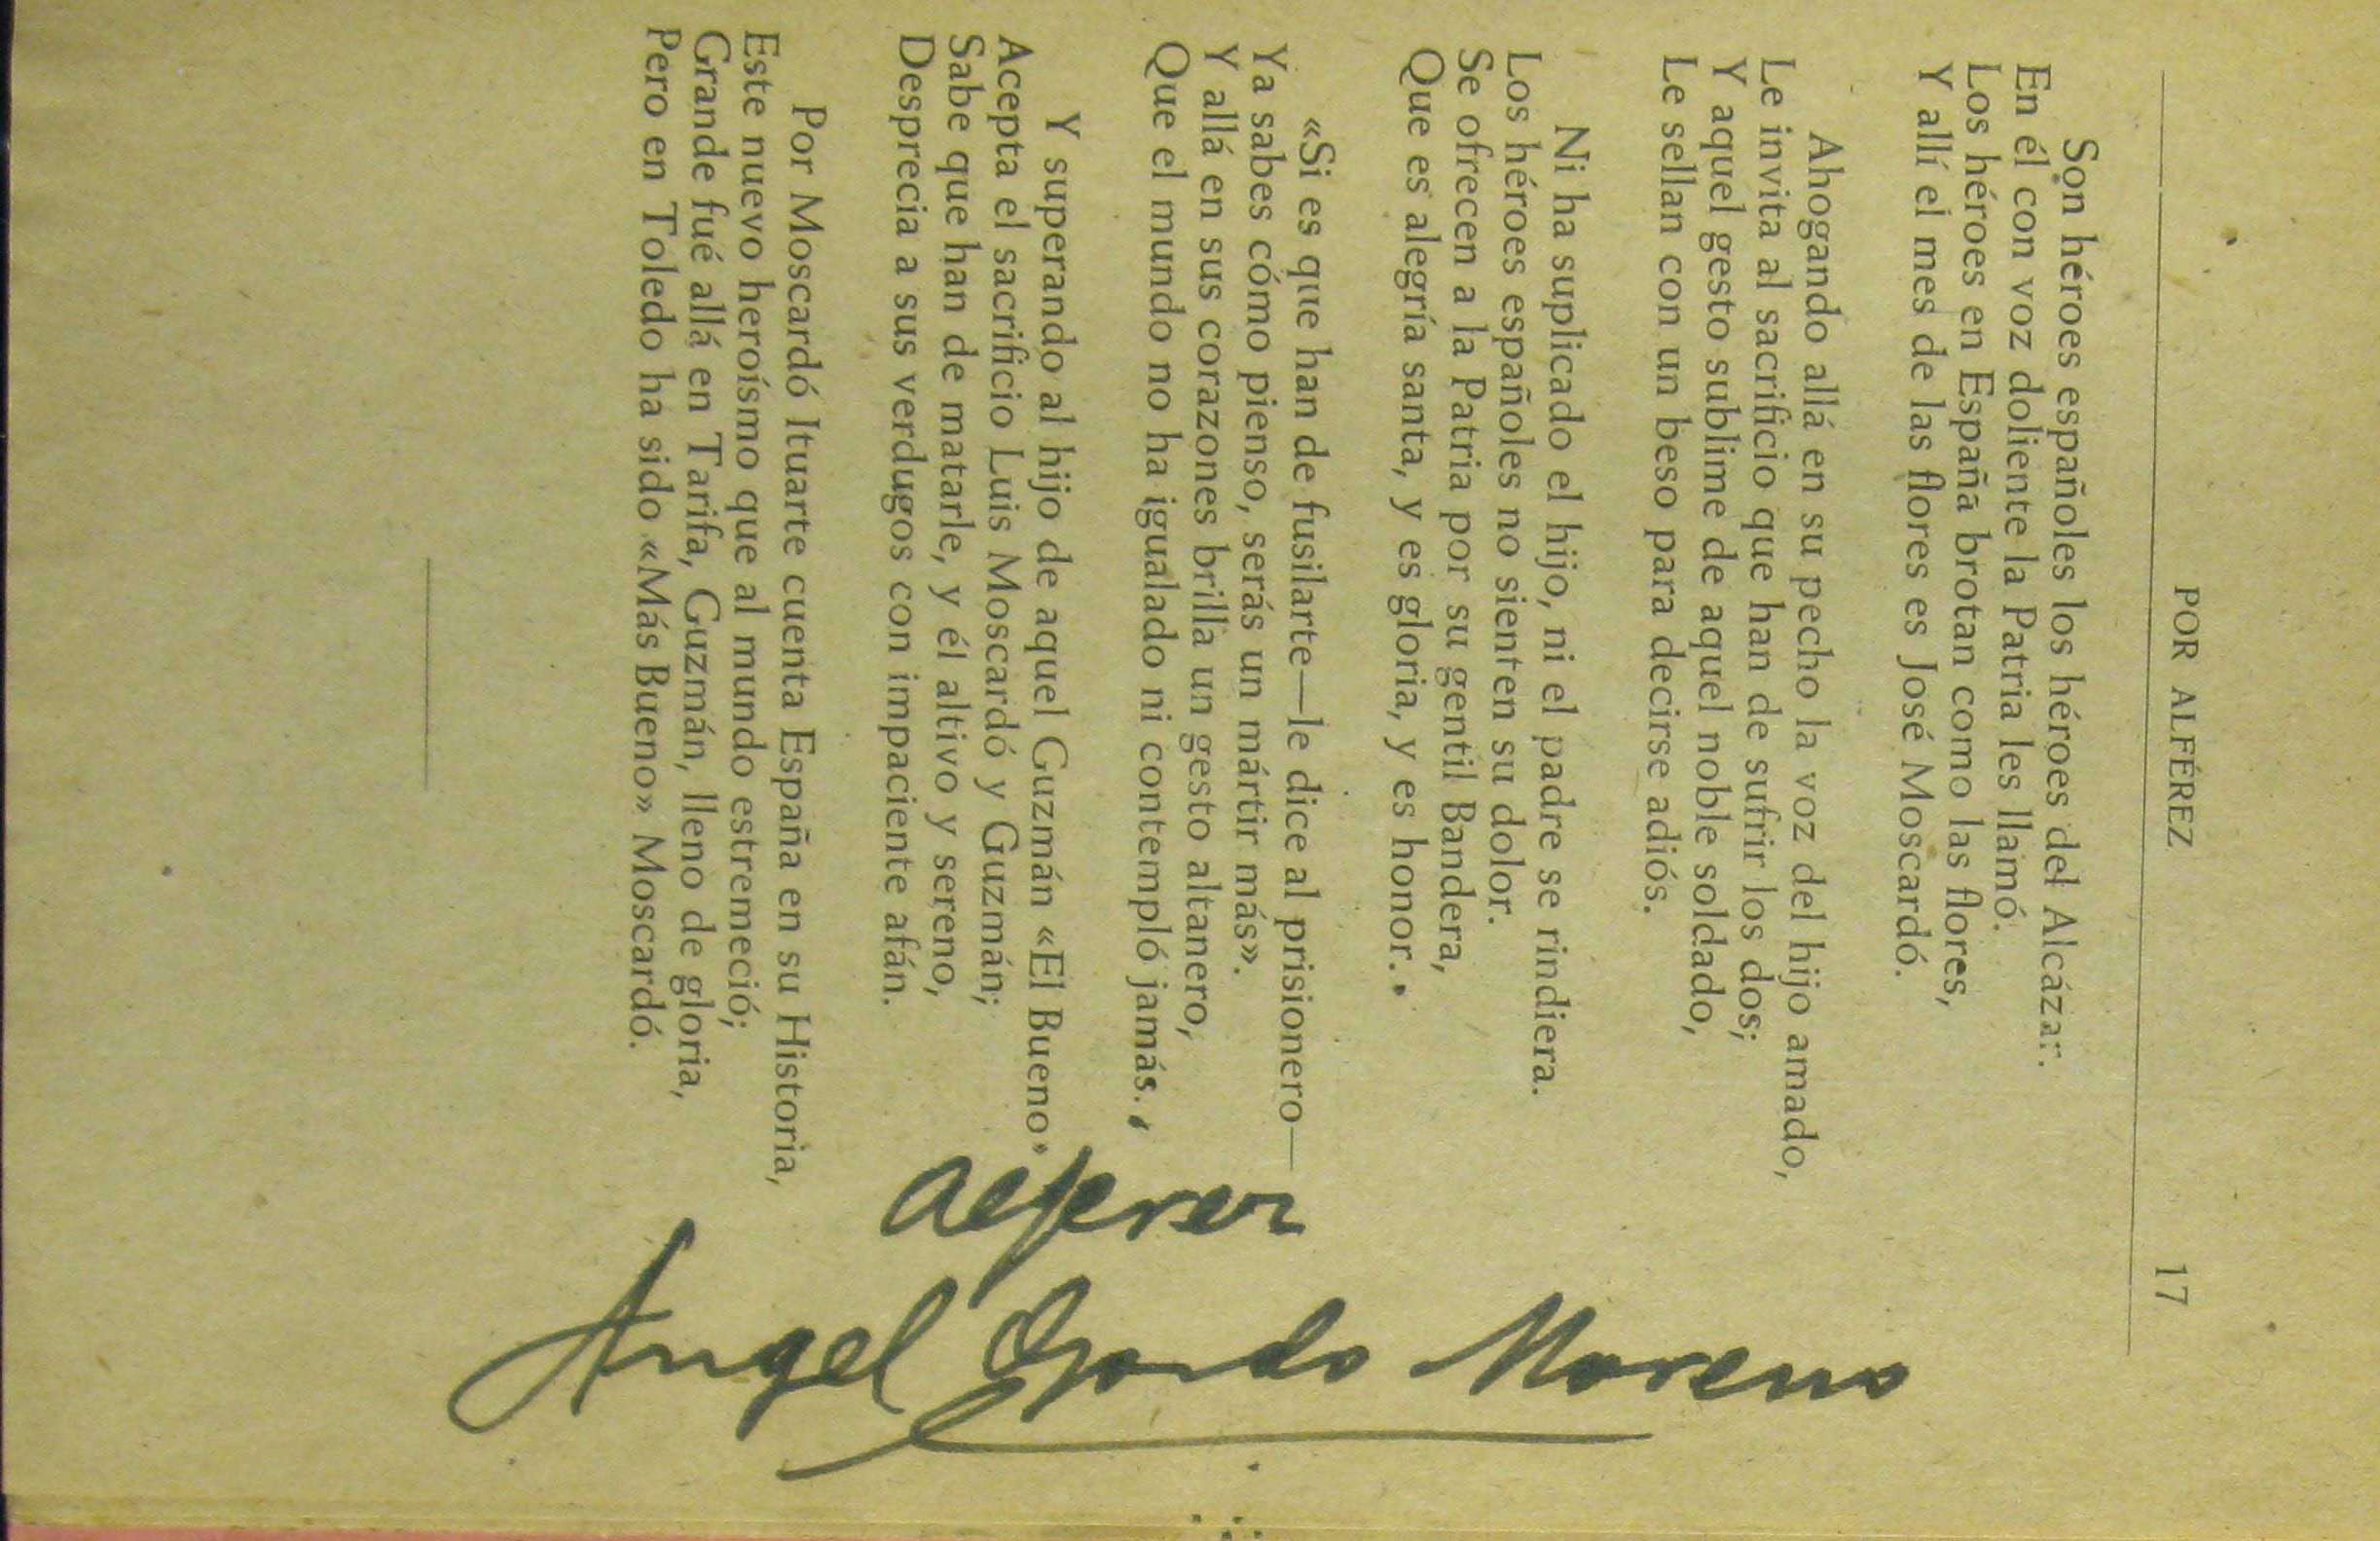 POR ALFÉREZ 17
Son héroes españoles los héroes del Alcázar.
En él con voz doliente la Patria les llamó.
Los héroes en España brotan como las flores,
Y allí el mes de las flores es José Moscardó.
Ahogando allá en su pecho la voz del hijo amado,
Le invita al sacrificio que han de sufrir los dos;
Y aquel gesto sublime de aquel noble soldado,
Le sellan con un beso para decirse adiós.
Ni ha suplicado el hijo, ni el padre se rindiera.
Los héroes españoles no sienten su dolor.
Se ofrecen a la Patria por su gentil Bandera,
Que es alegría santa, y es gloria, y es honor.
«Si es que han de fusilarte—le dice al prisionero—
Ya sabes cómo pienso, serás un mártir más».
Y allá en sus corazones brilla un gesto altanero,
Que el mundo no ha igualado ni contempló jamás.
Y superando al hijo de aquel Guzmán «El Bueno»
Acepta el sacrificio Luis Moscardó y Guzmán;
Sabe que han de matarle, y él altivo y sereno,
Desprecia a sus verdugos con impaciente afán.
Por Moscardó Ituarte cuenta España en su Historia,
Este nuevo heroísmo que al mundo estremeció;
Grande fué allá en Tarifa, Guzmán, lleno de gloria,
Pero en Toledo ha sido «Más Bueno» Moscardó.
Alferez
Angel Gordo Moreno